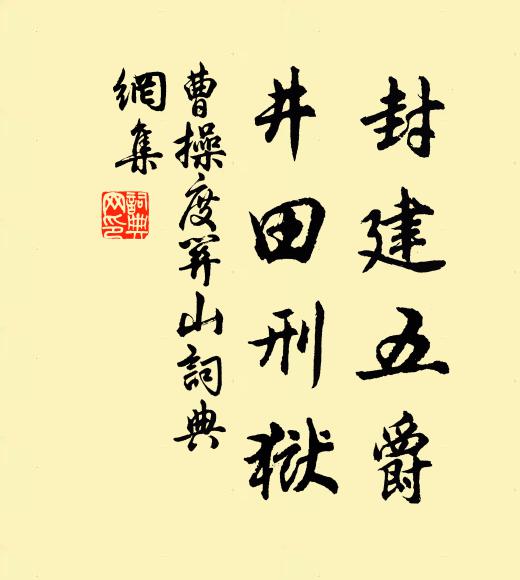 封建五爵
井田刑獄
曹操度关山詞典
網集
詞典
网印